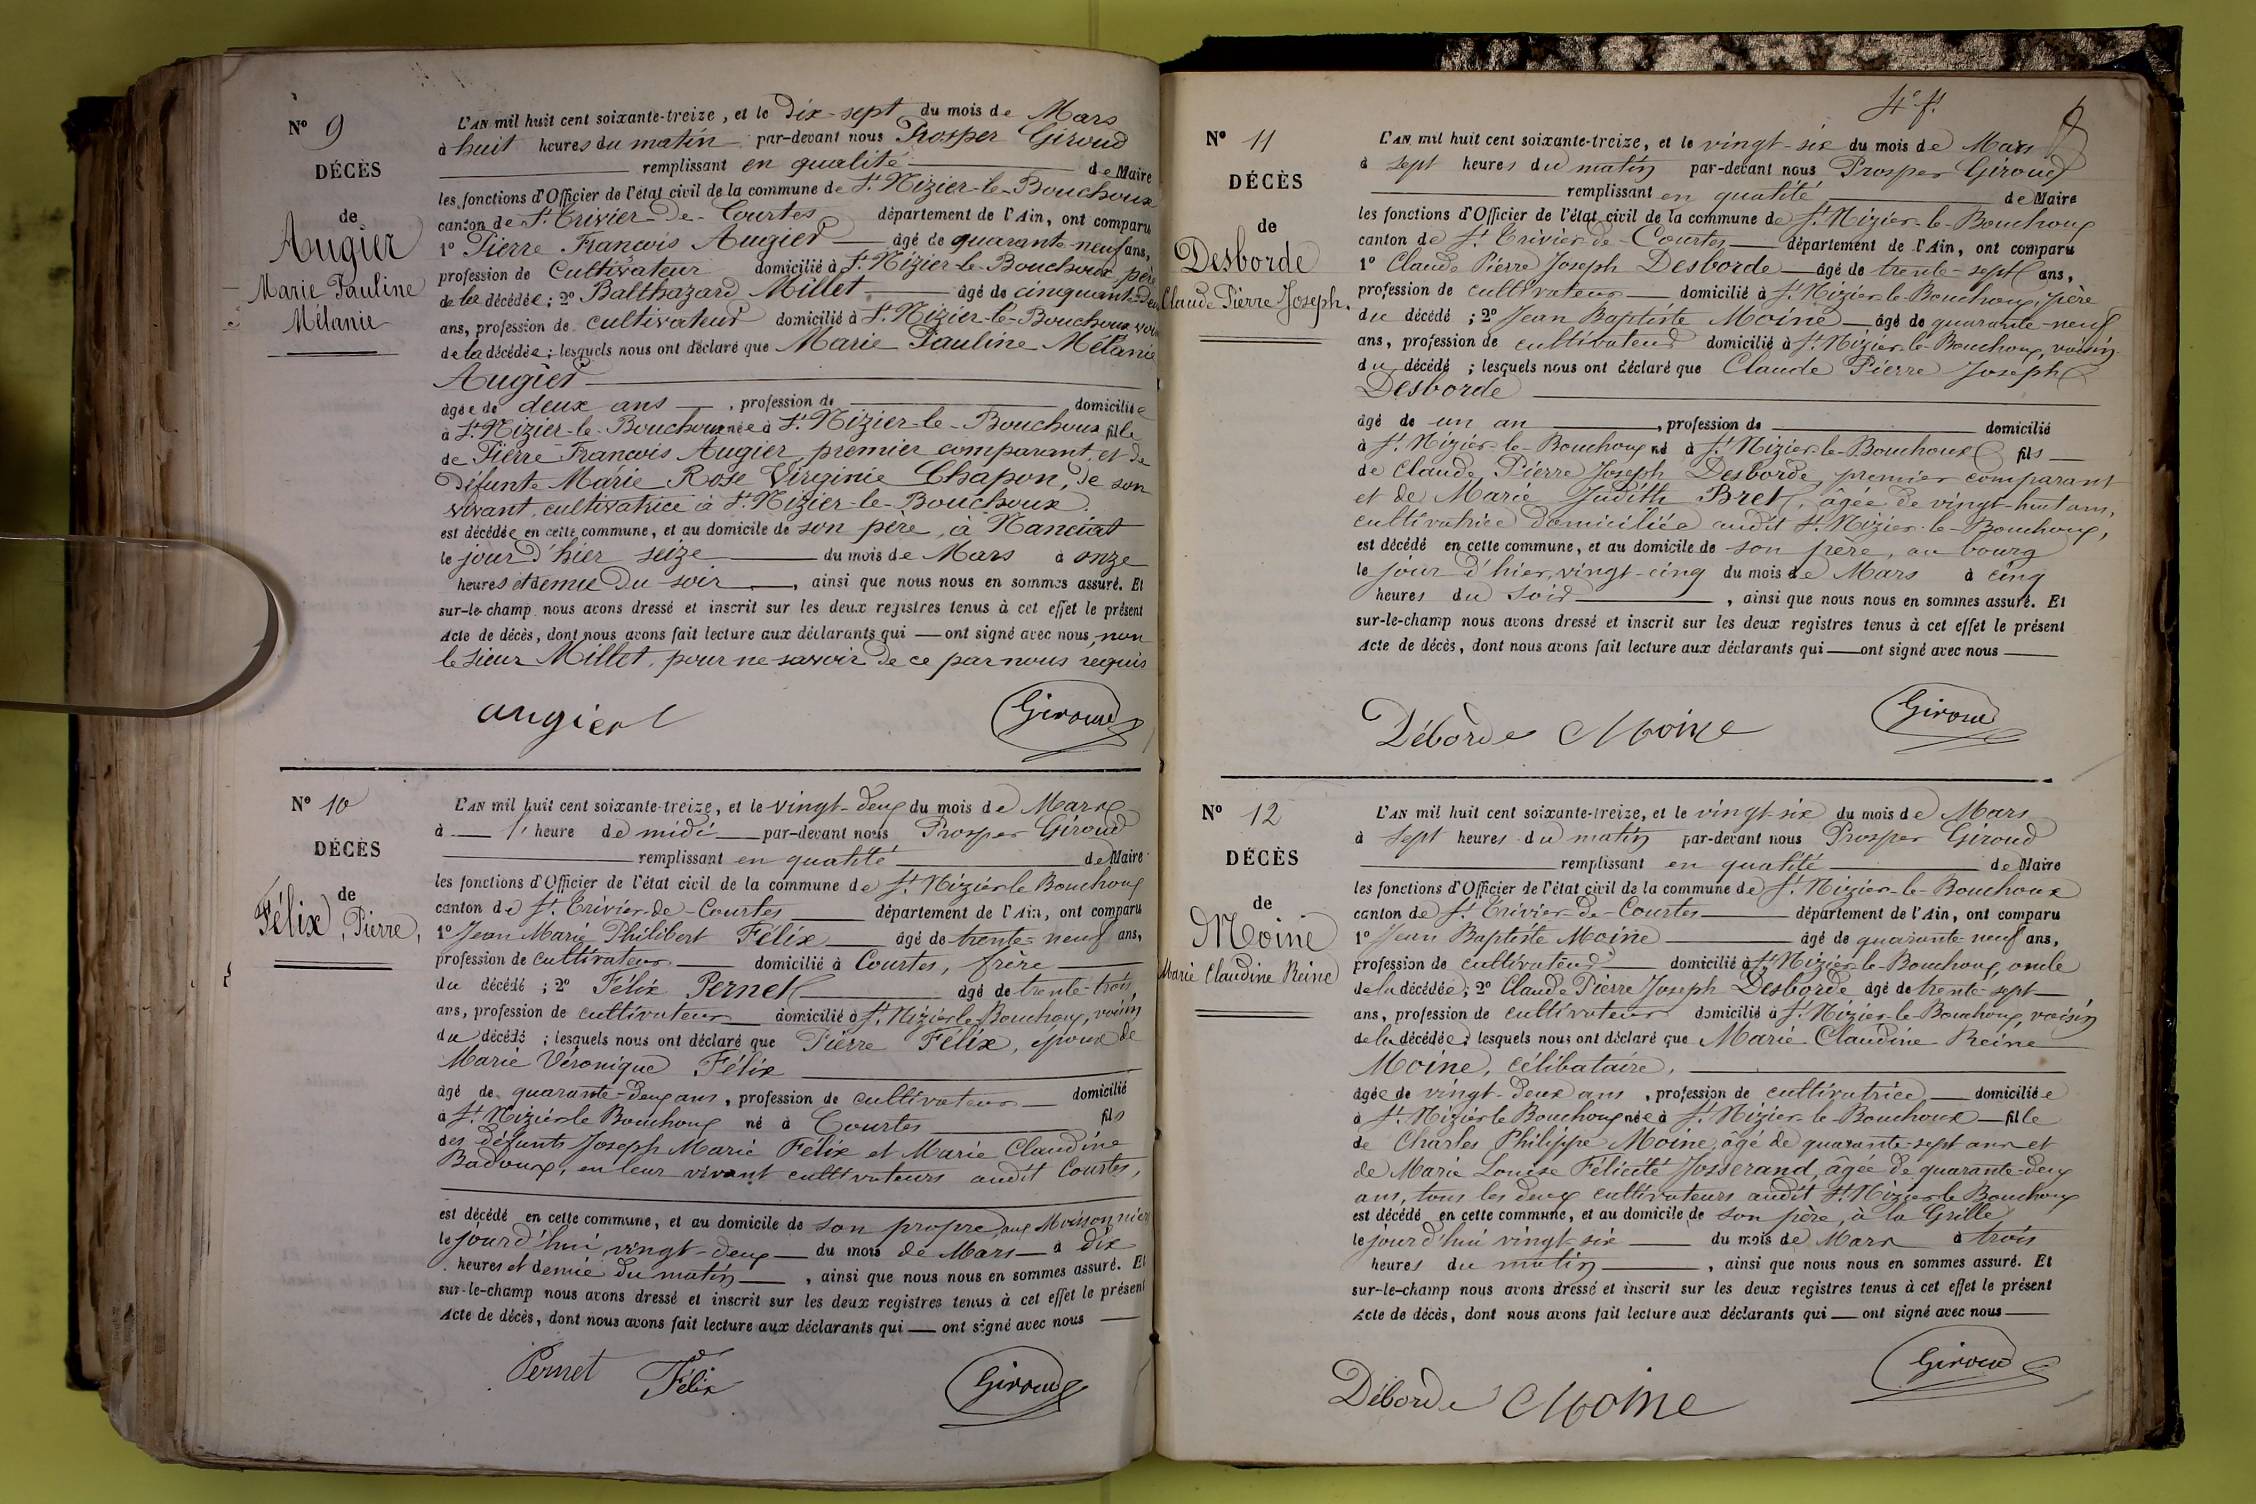 Nº 9
DÉCÈS
de
Augier
Marie Pauline
Mélanie
L'AN mil huit cent soixante-treize, et le dix-sept du mois de Mars
à huit heures du matin par-devant nous Prosper Giroud
remplissant en qualité de Maire
les fonctions d'Officier de l'état civil de la commune de St Nizier-le-Bouchoux
canton de St Trivier-de-Courtes département de l'Ain, ont comparu
1º Pierre François Augier âgé de quarante-neuf ans,
profession de Cultivateur domicilié à St Nizier-le-Bouchoux, père
de la décédée ; 2º Balthazard Millet âgé de cinquante-deux
ans, profession de cultivateur domicilié à St Nizier-le-Bouchoux, voisin
de la décédée ; lesquels nous ont déclaré que Marie Pauline Mélanie
Augier
âgée de deux ans , profession de domiciliée
à St Nizier-le-Bouchoux née à St Nizier-le-Bouchoux fille
de Pierre François Augier, premier comparant, et de
défunte Marie Rose Virginie Chapon, de son
vivant, cultivatrice à St Nizier-le-Bouchoux.
est décédée en cette commune, et au domicile de son père, à Nanciat
le jour d'hier seize du mois de Mars à onze
heures et demie du soir , ainsi que nous nous en sommes assuré. Et
sur-le-champ nous avons dressé et inscrit sur les deux registres tenus à cet effet le présent
Acte de décès, dont nous avons fait lecture aux déclarants qui ont signé avec nous, non
le sieur Millet, pour ne savoir de ce par nous requis
augier
Giroud
Nº 10
DÉCÈS
de
Félix, Pierre,
L'AN mil huit cent soixante-treize, et le vingt-deux du mois de Mars
à l' heure de midi par-devant nous Prosper Giroud
remplissant en qualité de Maire
les fonctions d'Officier de l'état civil de la commune de St Nizier le Bouchoux
canton de St Trivier-de-Courtes département de l'Ain, ont comparu
1º Jean Marie Philibert Félix âgé de trente-neuf ans,
profession de cultivateur domicilié à Courtes, frère
du décédé ; 2º Félix Pernet âgé de trente-trois
ans, profession de cultivateur domicilié à St Nizier le Bouchoux, voisin
du décédé ; lesquels nous ont déclaré que Pierre Félix, époux de
Marie Véronique Félix
âgé de quarante-deux ans, profession de cultivateur domicilié
à St Nizier le Bouchoux né à Courtes fils
des défunts Joseph Marie Félix et Marie Claudine
Badoux, en leur vivant cultivateurs audit Courtes,
est décédé en cette commune, et au domicile de son propre, aux Moissonniers
le jourd'hui vingt-deux du mois de Mars à dix
heures et demie du matin , ainsi que nous nous en sommes assuré. Et
sur-le-champ nous avons dressé et inscrit sur les deux registres tenus à cet effet le présent
Acte de décès, dont nous avons fait lecture aux déclarants qui ont signé avec nous
Pernet Félix
Giroud
4e ft
Nº 11
DÉCÈS
de
Desborde
Claude Pierre Joseph.
L'AN mil huit cent soixante-treize, et le vingt-six du mois de Mars
à sept heures du matin par-devant nous Prosper Giroud
remplissant en qualité de Maire
les fonctions d'Officier de l'état civil de la commune de St Nizier-le-Bouchoux
canton de St Trivier-de-Courtes département de l'Ain, ont comparu
1º Claude Pierre Joseph Desborde âgé de trente-sept ans,
profession de cultivateur domicilié à St Nizier-le-Bouchoux, père
du décédé ; 2º Jean Baptiste Moine âgé de quarante-neuf
ans, profession de cultivateur domicilié à St Nizier-le-Bouchoux, voisin
du décédé ; lesquels nous ont déclaré que Claude Pierre Joseph
Desborde
âgé de un an , profession de domicilié
à St Nizier-le-Bouchoux né à St Nizier-le-Bouchoux fils
de Claude Pierre Joseph Desborde, premier comparant
et de Marie Judith Bret, âgée de vingt-huit ans,
cultivatrice domiciliée audit St Nizier-le-Bouchoux,
est décédé en cette commune, et au domicile de son père, au bourg
le jour d'hier, vingt-cinq du mois de Mars à cinq
heures du soir , ainsi que nous nous en sommes assuré. Et
sur-le-champ nous avons dressé et inscrit sur les deux registres tenus à cet effet le présent
Acte de décès, dont nous avons fait lecture aux déclarants qui ont signé avec nous
Déborde Moine
Giroud
Nº 12
DÉCÈS
de
Moine
Marie Claudine Reine
L'AN mil huit cent soixante-treize, et le vingt-six du mois de Mars
à sept heures du matin par-devant nous Prosper Giroud
remplissant en qualité de Maire
les fonctions d'Officier de l'état civil de la commune de St Nizier-le-Bouchoux
canton de St Trivier-de-Courtes département de l'Ain, ont comparu
1º Jean Baptiste Moine âgé de quarante-neuf ans,
profession de cultivateur domicilié à St Nizier-le-Bouchoux, oncle
de la décédée ; 2º Claude Pierre Joseph Desborde âgé de trente-sept
ans, profession de cultivateur domicilié à St Nizier-le-Bouchoux, voisin
de la décédée ; lesquels nous ont déclaré que Marie Claudine Reine
Moine, célibataire,
âgée de vingt-deux ans , profession de cultivatrice domiciliée
à St Nizier le Bouchoux née à St Nizier-le-Bouchoux fille
de Charles Philippe Moine, âgé de quarante-sept ans et
de Marie Louise Félicité Josserand, âgée de quarante-deux
ans, tous les deux cultivateurs audit St Nizier le Bouchoux
est décédée en cette commune, et au domicile de son père, à la Grille
le jourd'hui vingt-six du mois de Mars à trois
heures du matin , ainsi que nous nous en sommes assuré. Et
sur-le-champ nous avons dressé et inscrit sur les deux registres tenus à cet effet le présent
Acte de décès, dont nous avons fait lecture aux déclarants qui ont signé avec nous
Déborde Moine
Giroud